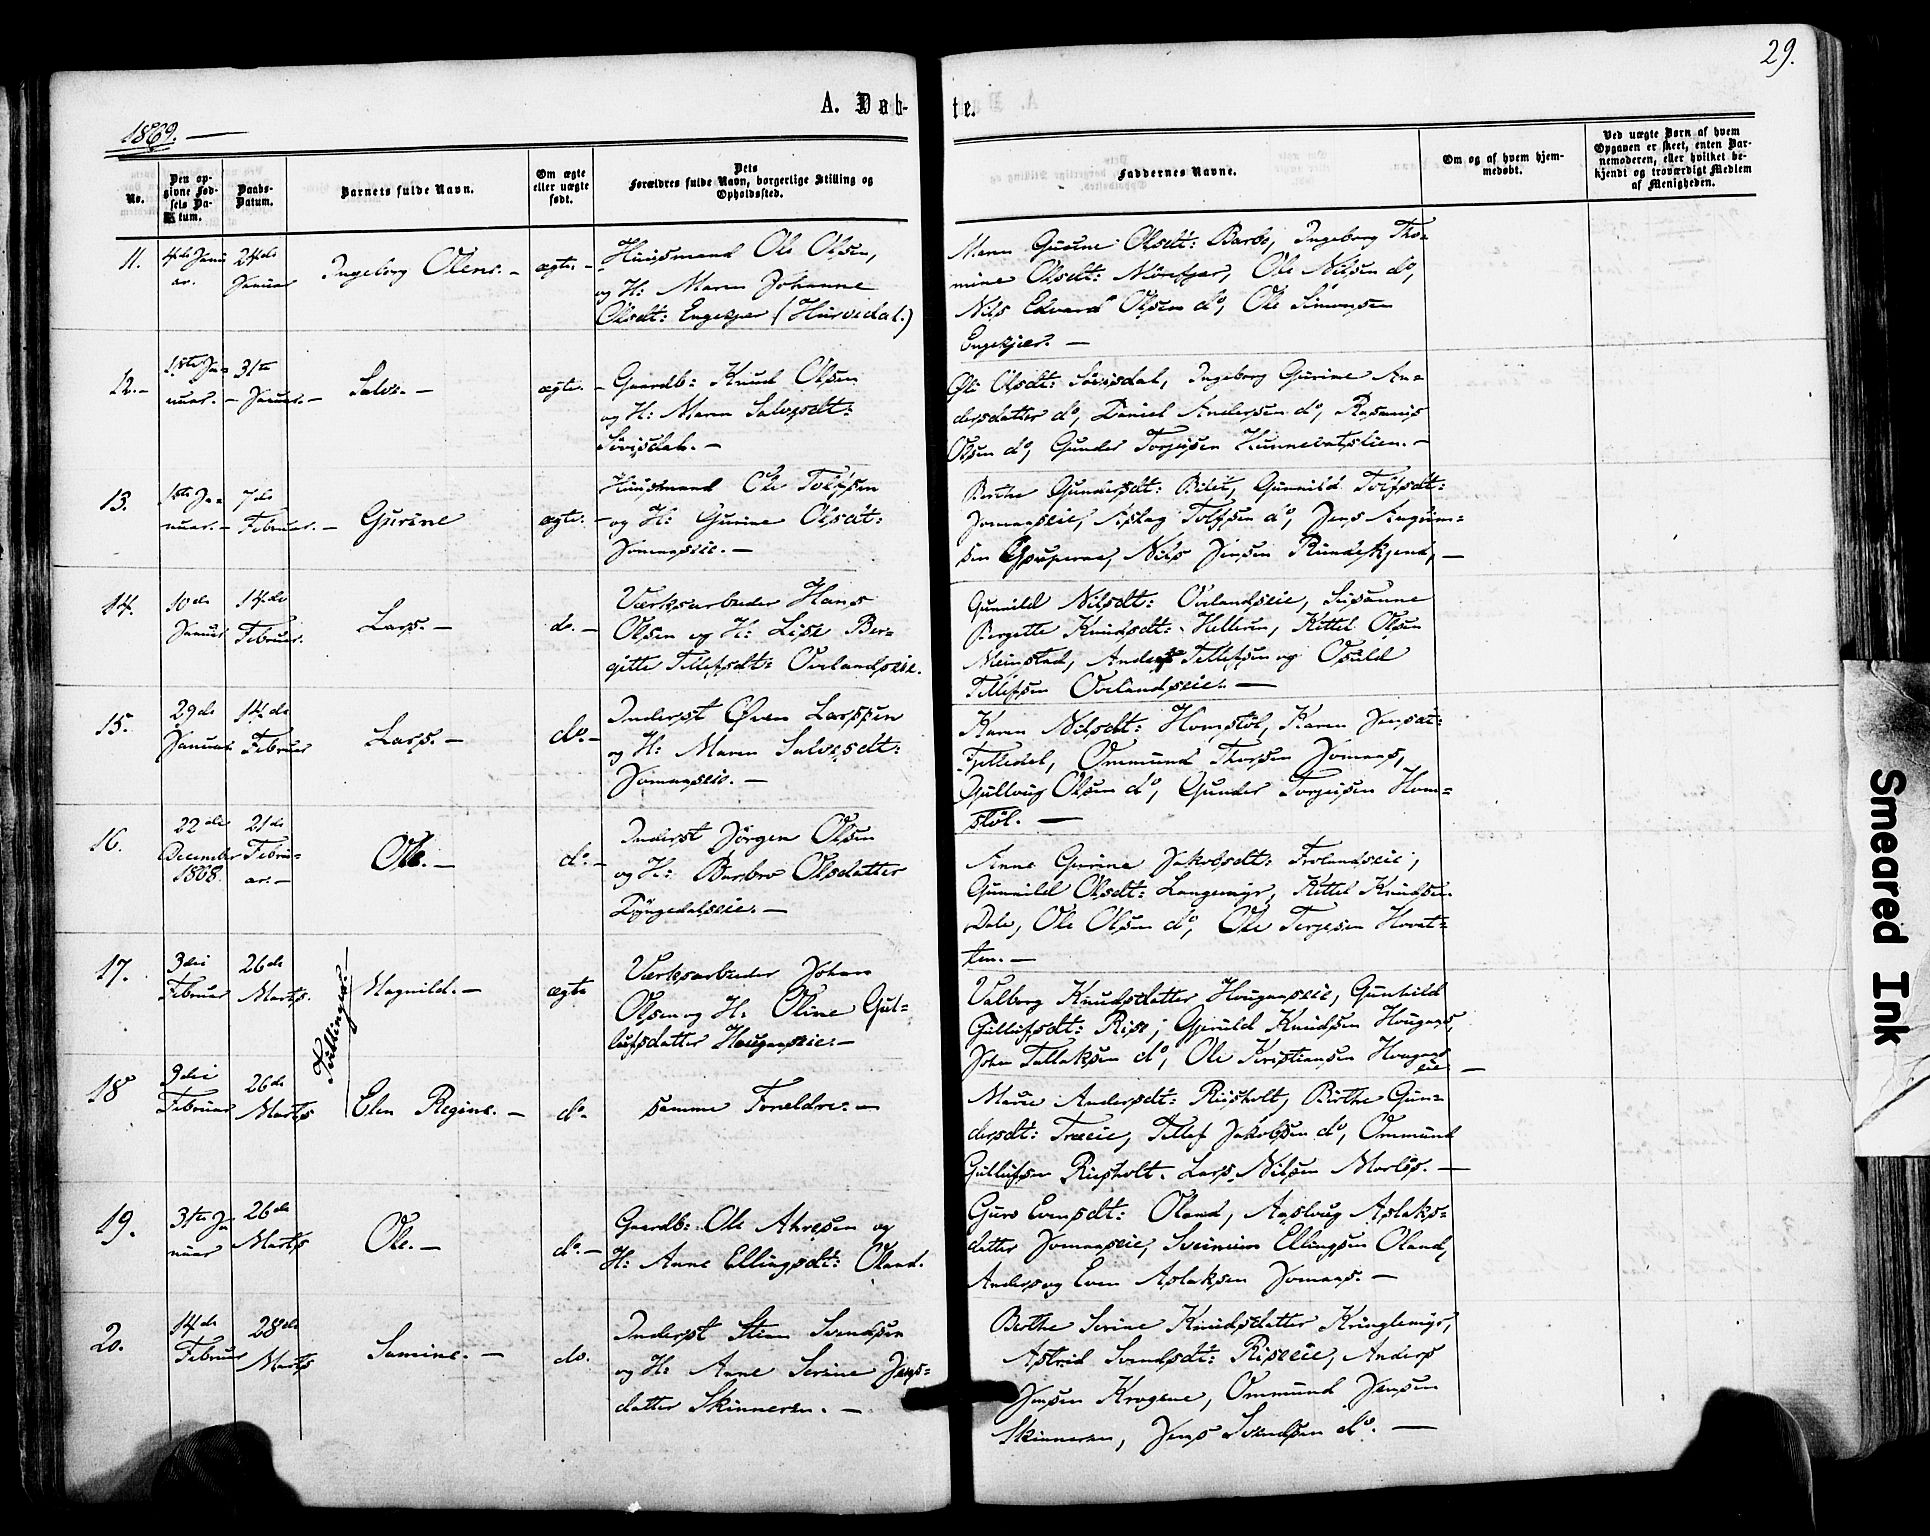 29.
A. Døb-
te.
1869.
No.
Den op-
givne Fød-
sels Da-
tum.
Daabs-
Datum.
Barnets fulde Navn.
Om ægte
eller uægte
født.
Dets
Forældres fulde Navn, borgerlige Stilling og
Opholdssted.
Faddernes Navne.
Om og af hvem hjem-
medøbt.
Ved uægte Børn af hvem
Opgaven er skeet, enten Bar-
nemoderen, eller hvilket be-
kjendt og troværdigt Medlem
af Menigheden.
11.
4de Janu
ar.
24de
Januar
Ingeborg Olene. -
ægte. -
Huusmand Ole Olsen,
og H: Maren Johanne
Olsdt: Engekjær (Hurvedal.)
Maren Gurine Olsdt: Barbo, Ingeborg Tho-
mine Olsdt: Mørefjær, Ole Nilsen do,
Nils Edvard Olsen do, Ole Simonsen
Engekjær. -
12. -
1ste Ja-
nuar. -
31te
Januar. -
Salve. -
ægte. -
Gaardb: Knud Olsen
og H: Maren Salvesdt:
Sævisdal. -
Olsdt: Sævisdal, Ingeborg Gurine An-
dersdatter do, Daniel Andersen do, Rasmus
Olsen do, Gunder Torjusen Hunnevatslien. -
13.
1ste Ja-
nuar. -
7de
Februar. -
Gurine
ægte. -
Huusmand Ole Tolfsen
og H: Gurine Olsdt:
Jomaaseie. -
Berthe Gundersdt: Gunnild Tolfsdt:
Jomaaseie, Aslag Tolfsen do, Jens
sen Nils Jensen -
14.
10de
Januar
14de
Februar.
Lars. -
do. -
Værksarbeider Hans
Olsen og H: Lise Ber-
gitte Tellefsdt: Ovelandseie.
Gunnild Nilsdt: Ovelandseie, Susanne
Birgitte Knudsdt: Helleren, Kittel Olsen
Meinstad, Anders Tellefsen og Osuld
Tellefsen Ovelandseie. -
15.
29de
Januar
14de
Februar
Lars. -
do. -
Inderst Øven Larssen
og H: Maren Salvesdt:
Jomaaseie. -
Karen Nilsdt: Homstøl, Karen Jensdt:
Fjelledal, Ommund Thorsen Jomaas,
Gulloug Olsen do, Gunder Torjusen Hom-
støl. -
16.
22de
December
1868.
21de
Febru-
ar. -
Ole. -
do. -
Inderst Jørgen Olsen
og H: Barbro Olsdatter
Lyngedalseie. -
Anne Gurine Jakobsdt: Frolandseie,
Gunnild Olsdt: Langemyr, Kittel Knudsen
Dale, Ole Olsen do, Ole Terjesen Hovat-
ten. -
Tvillinger. -
17.
3die
Februar
26de
Marts.
Magnild. -
ægte
Værksarbeider Johan
Olsen og H: Oline Gul-
lufsdatter Hougaaseie. -
Valborg Knudsdatter Hougaaseie, Gunhild
Gullufsdt: Rise, Gjeruld Knudsen Hougaas,
John Tallaksen do, Ole Kristiansen Hougaas
eie. -
18
9die
Februar
26de
Marts
Elen Regine. -
do.
samme Foreldre. -
Marie Andersdt: Riisholt, Birthe Gun-
dersdt: Træeie, Tellef Jakobsen do, Ommund
Gullufsen Riisholt. Lars Nilsen Morløs. -
19.
31te Ja
nuar
26de
Marts
Ole. -
do. -
Gaardb: Ole Alvesen og
H: Anne Ellingsdt: Øland.
Guro Evensdt: Øland, Aaslaug Aslaks-
datter Jomaaseie, Sveinum Ellingsen Øland,
Anders og Even Aslaksen Jomaas. -
20.
14de
Februar
28de
Marts
Samine. -
do.
Inderst Stian Svendsen
og H: Anne Serine Jens-
datter Skinneren. -
Berthe Serine Knudsdatter Kringlemyr,
Astrid Svendsdt: Riseeie, Anders
Jensen Krogene, Ommund Jensen
Skinneren, Jens Svendsen do. -
Smeared Ink